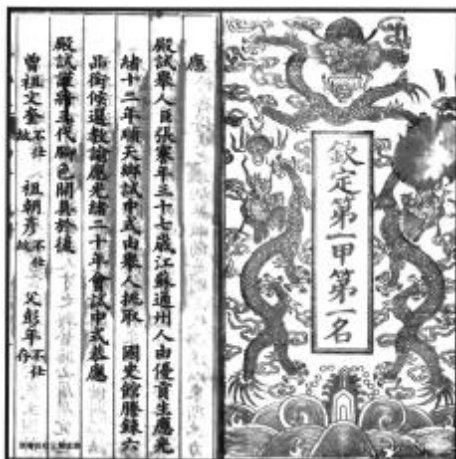 欽定第一甲第一名
應
殿試舉人臣張謇年三十七歲江蘇通州人由優貢生應光
緒十二年順天鄉試中式由舉人挑取 國史館謄錄六
品銜候選教諭應光緒二十年會試中式恭應
殿試謹將三代腳色開具於後
曾祖文奎 不仕 故 祖朝彥 不仕 故 父彭年 不仕 存